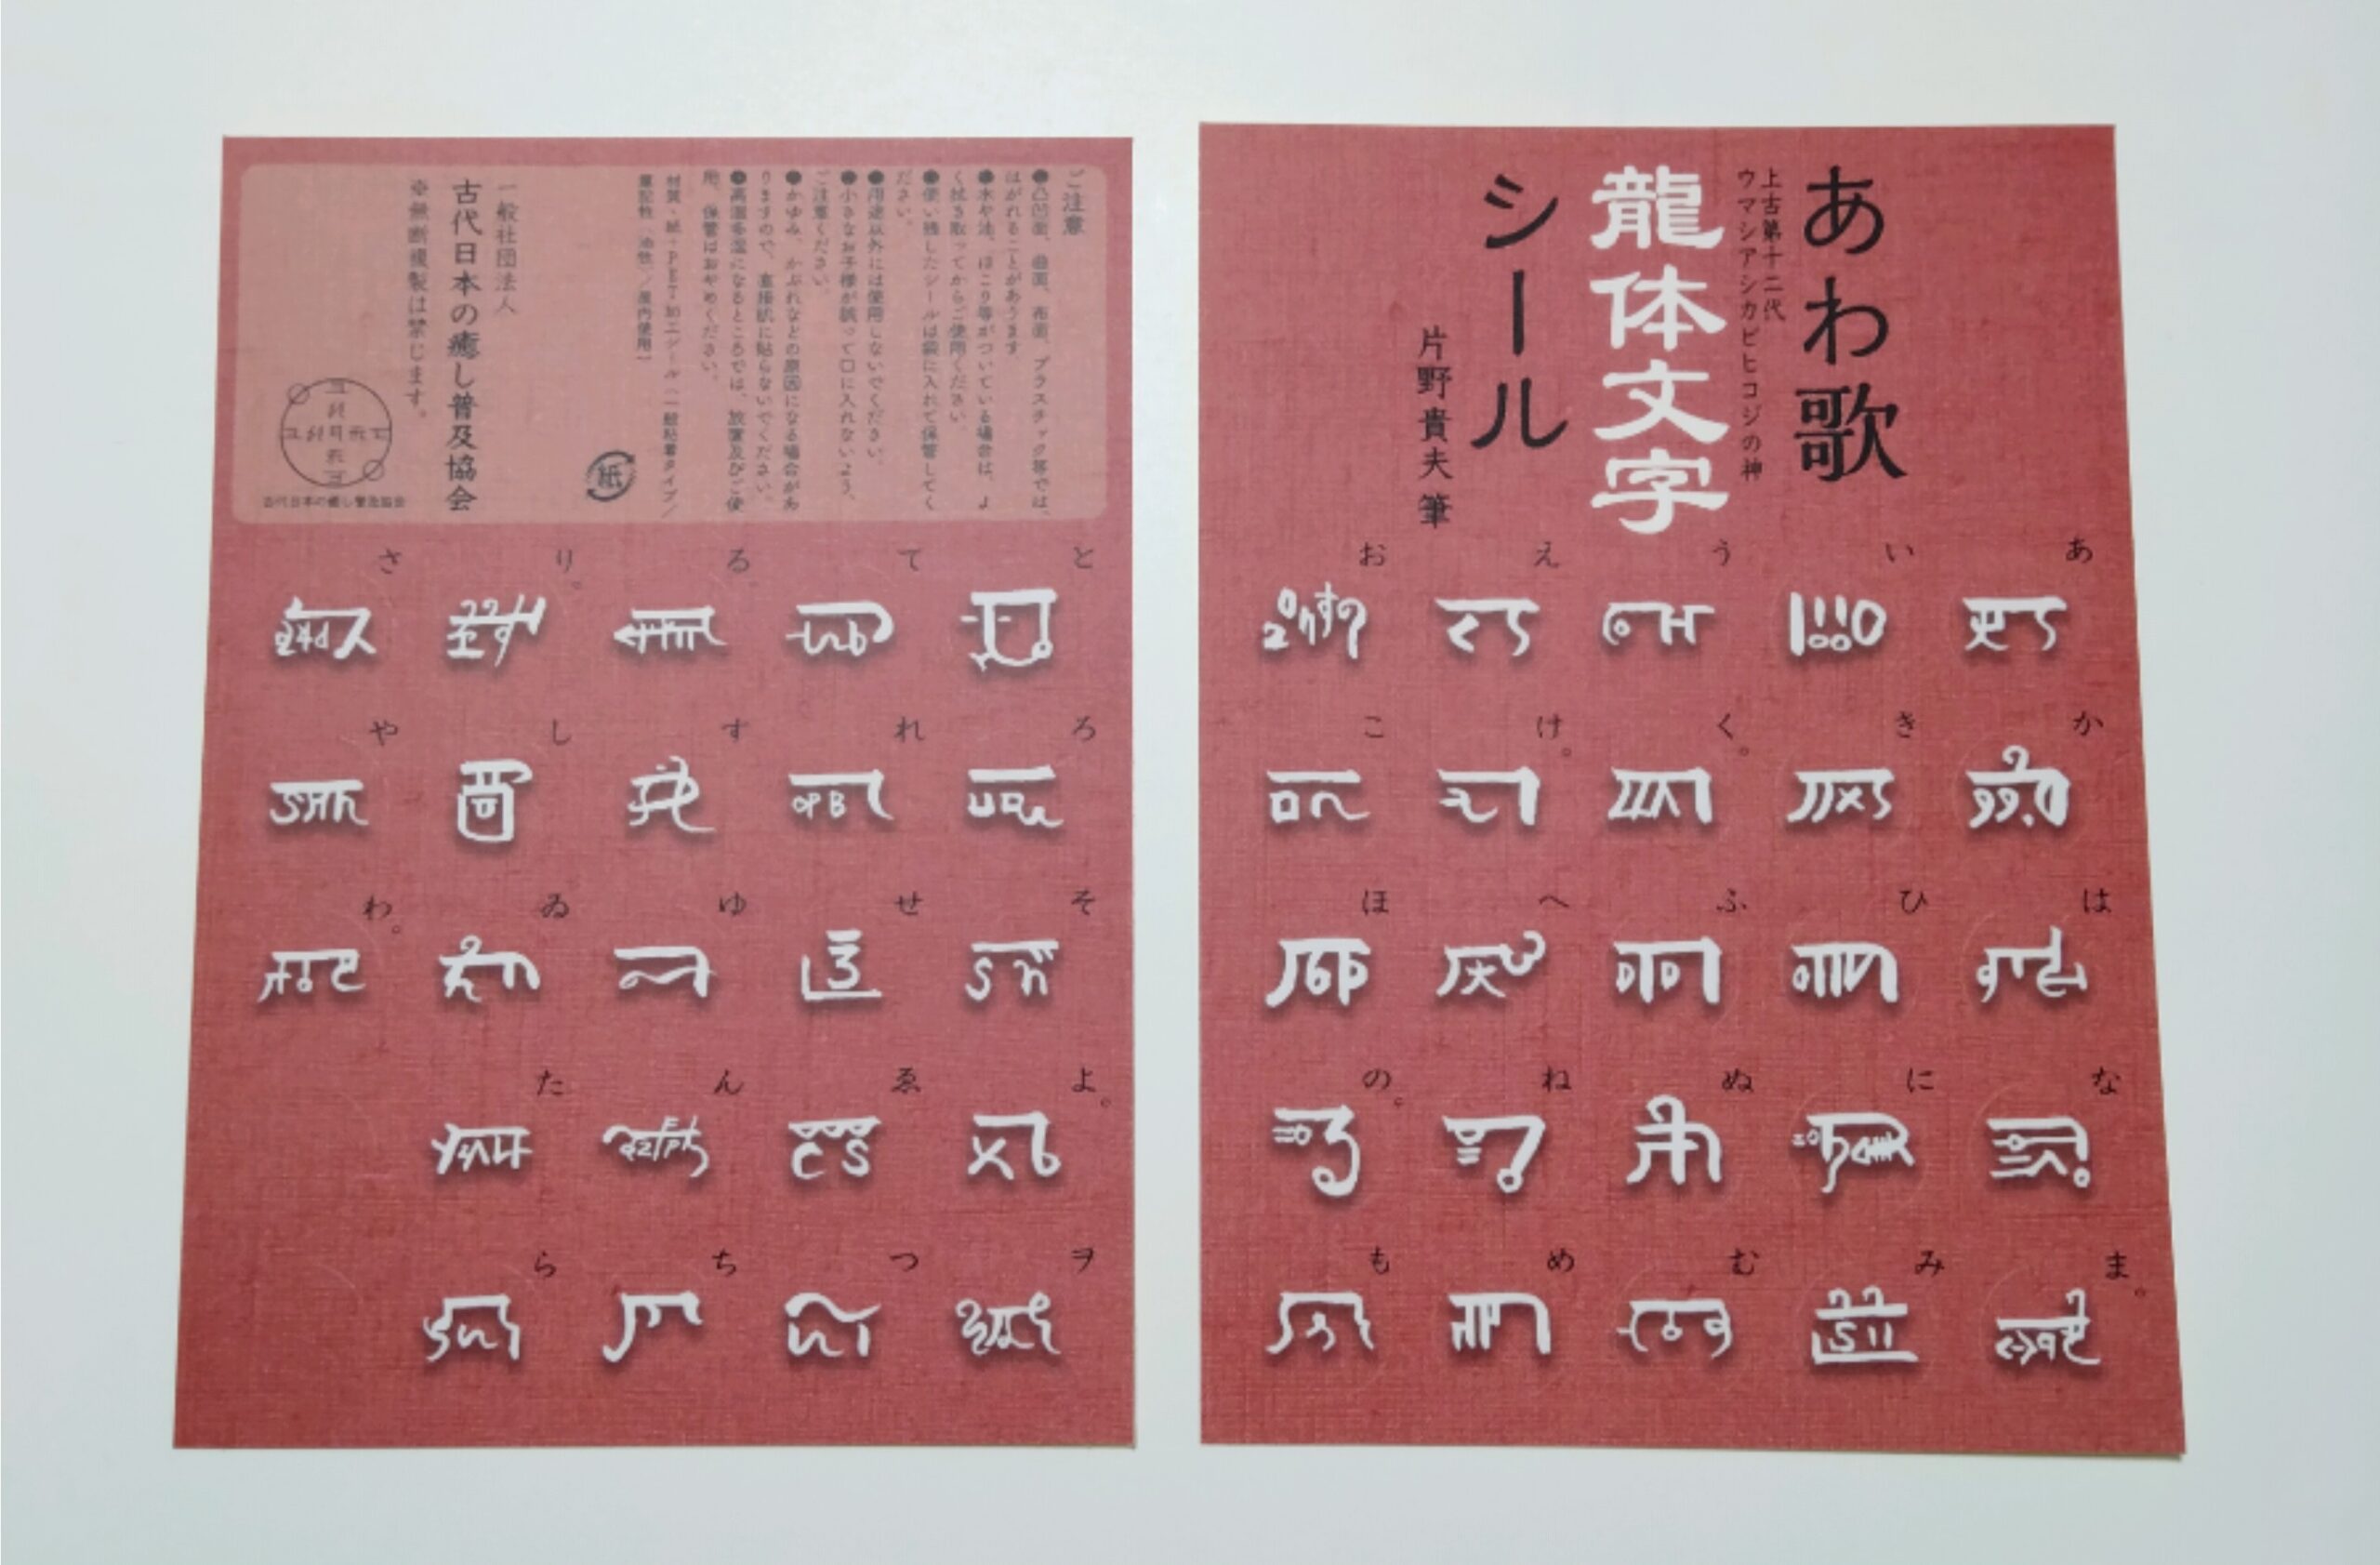 あわ歌
上古第十二代
ウマシアシカビヒコジの神
龍体文字
シール
片野貴夫 筆
あ か は な ま。
い き ひ に み
う く。 ふ ぬ む
え け。 へ ね め
お こ ほ の。 も
ご注意
●凸凹面、曲面、布面、プラスチック等では、
はがれることがあります
●水や油、ほこり等がついている場合は、よ
く拭き取ってからご使用ください。
●使い残したシールは袋に入れて保管してく
ださい。
●用途以外には使用しないでください。
●小さなお子様が誤って口に入れないよう、
ご注意ください。
●かゆみ、かぶれなどの原因になる場合があ
りますので、直接肌に貼らないでください。
●高温多湿になるところでは、放置及びご使
用、保管はおやめください。
材質：紙＋PET加工シール（一般粘着タイプ／
筆記性（油性）／屋内使用）
紙
一般社団法人
古代日本の癒し普及協会
※無断複製は禁じます。
古代日本の癒し普及協会
と ろ そ よ。 ヲ
て れ せ ゑ つ
る。 す ゆ ん ち
り。 し ゐ た ら
さ や わ。